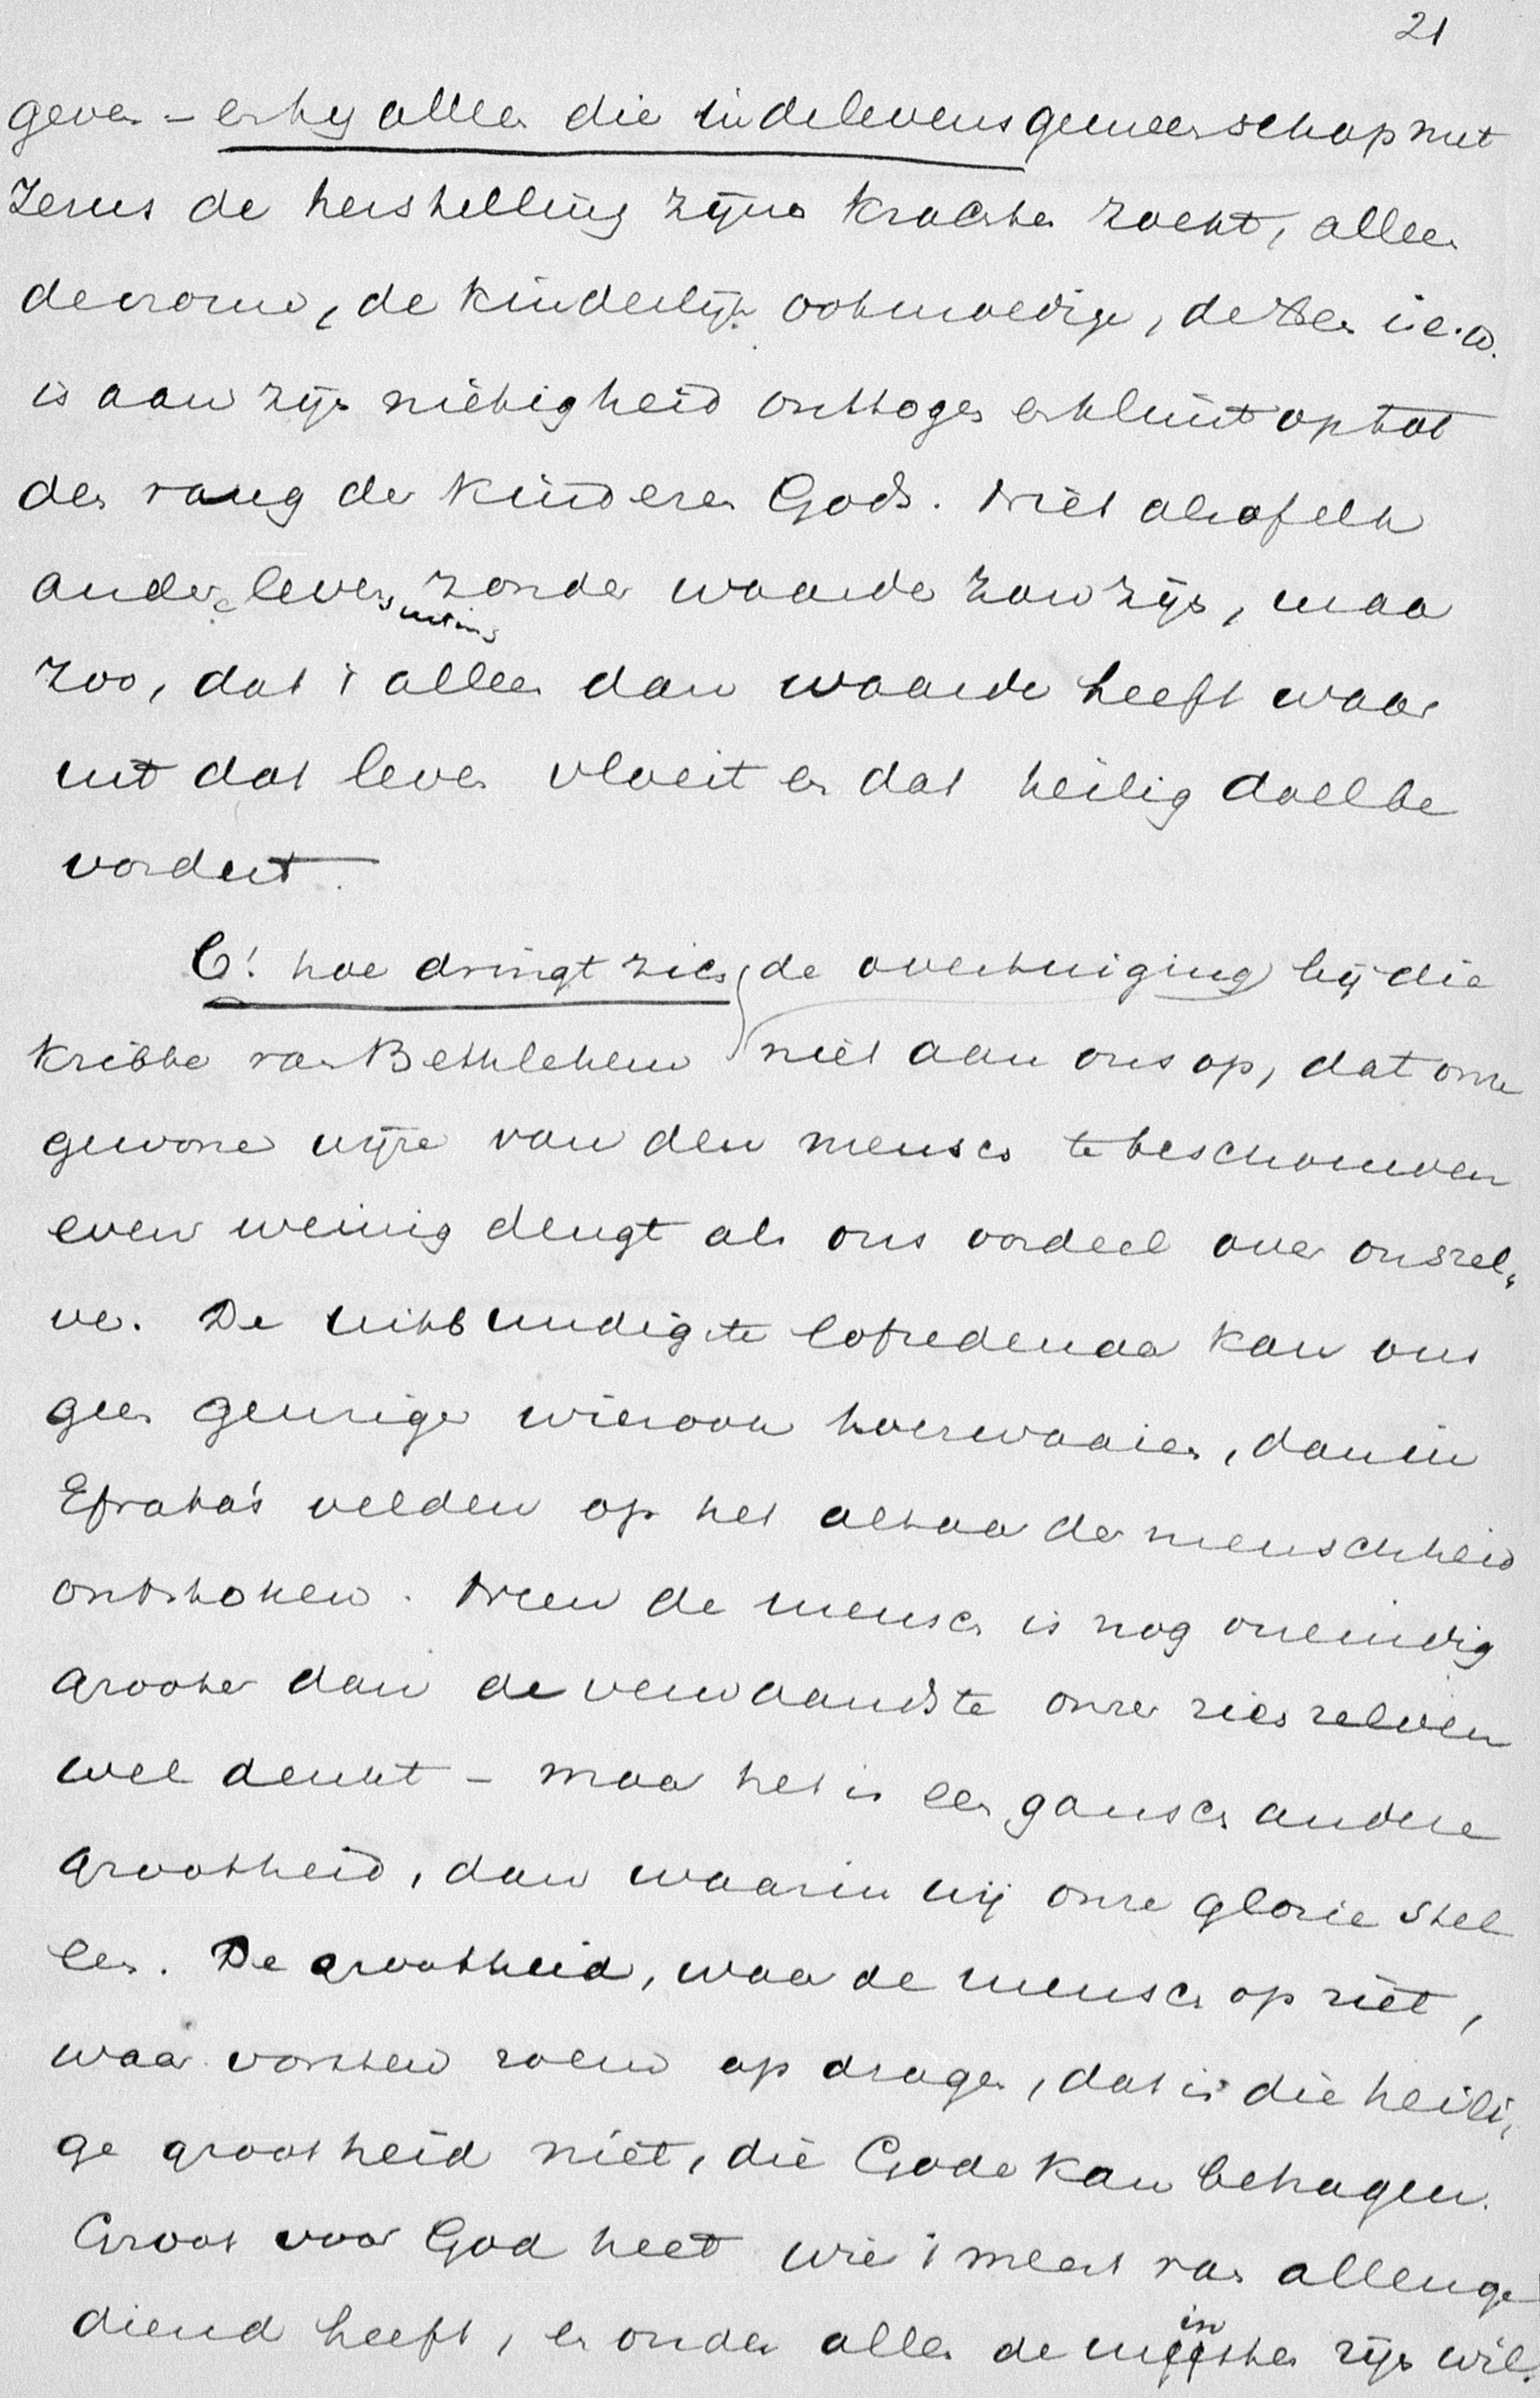 21
geven – en hij alleen die in de levensgemeenschap met
Jezus de herstelling zijner krachten zoekt, alleen
de vrome, de kinderlijk ootmoedige, de
is aan zijn nietigheid onttogen en klimt op tot
den rang der kinderen Gods. Niet alsof elk
andere levensuiting zonder waarde zou zijn, maar
zoo, dat 't alleen dan waarde heeft waar 't
uit dat leven vloeit en dat heilig doel be
vordert.
O! hoe dringt zich de overtuiging bij die
kribbe van Bethlehem niet aan ons op, dat onze
gewone wijze van den mensch te beschouwen
even weinig deugt als ons oordeel over onszel„
ven. De uitbundigste lofredenaar kan ons
geen geuriger wierook toewaaien, dan in
Efratha's velden op het altaar der menschheid
ontstoken. Neen de mensch is nog oneindig
grooter dan de verwaandste onzer zich zelven
wel denkt – maar het is een gansch andere
grootheid, dan waarin wij onze glorie stel
len. De grootheid, waar de mensch op ziet,
waar vorsten roem op dragen, dat is die heili„
ge grootheid niet, die Gode kan behagen.
Groot voor God heet wie 't meest van allen ge
diend heeft, en onder allen de minsten zijn wil.